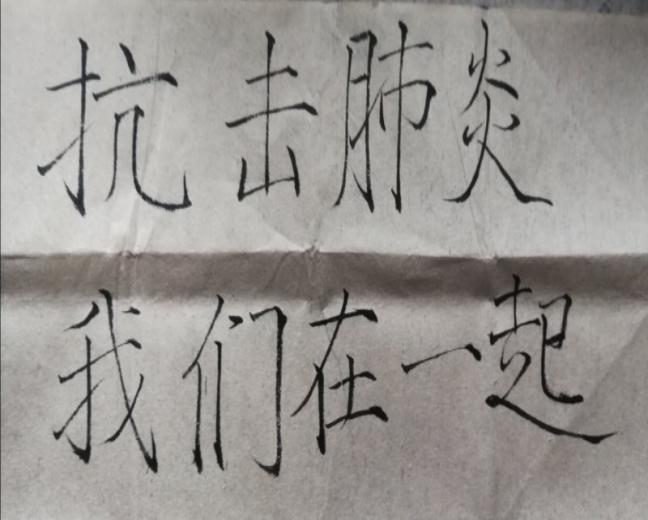 抗击肺炎
我们在一起